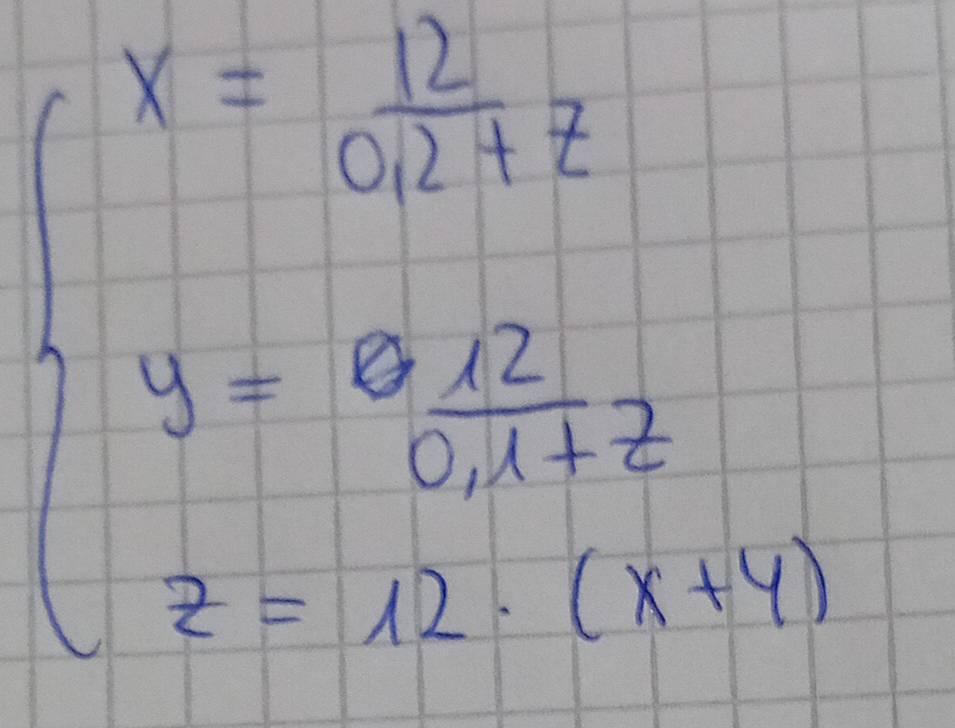 x = 12 / (0,2 + z)
y = 12 / (0,1 + z)
z = 12 · (x + y)